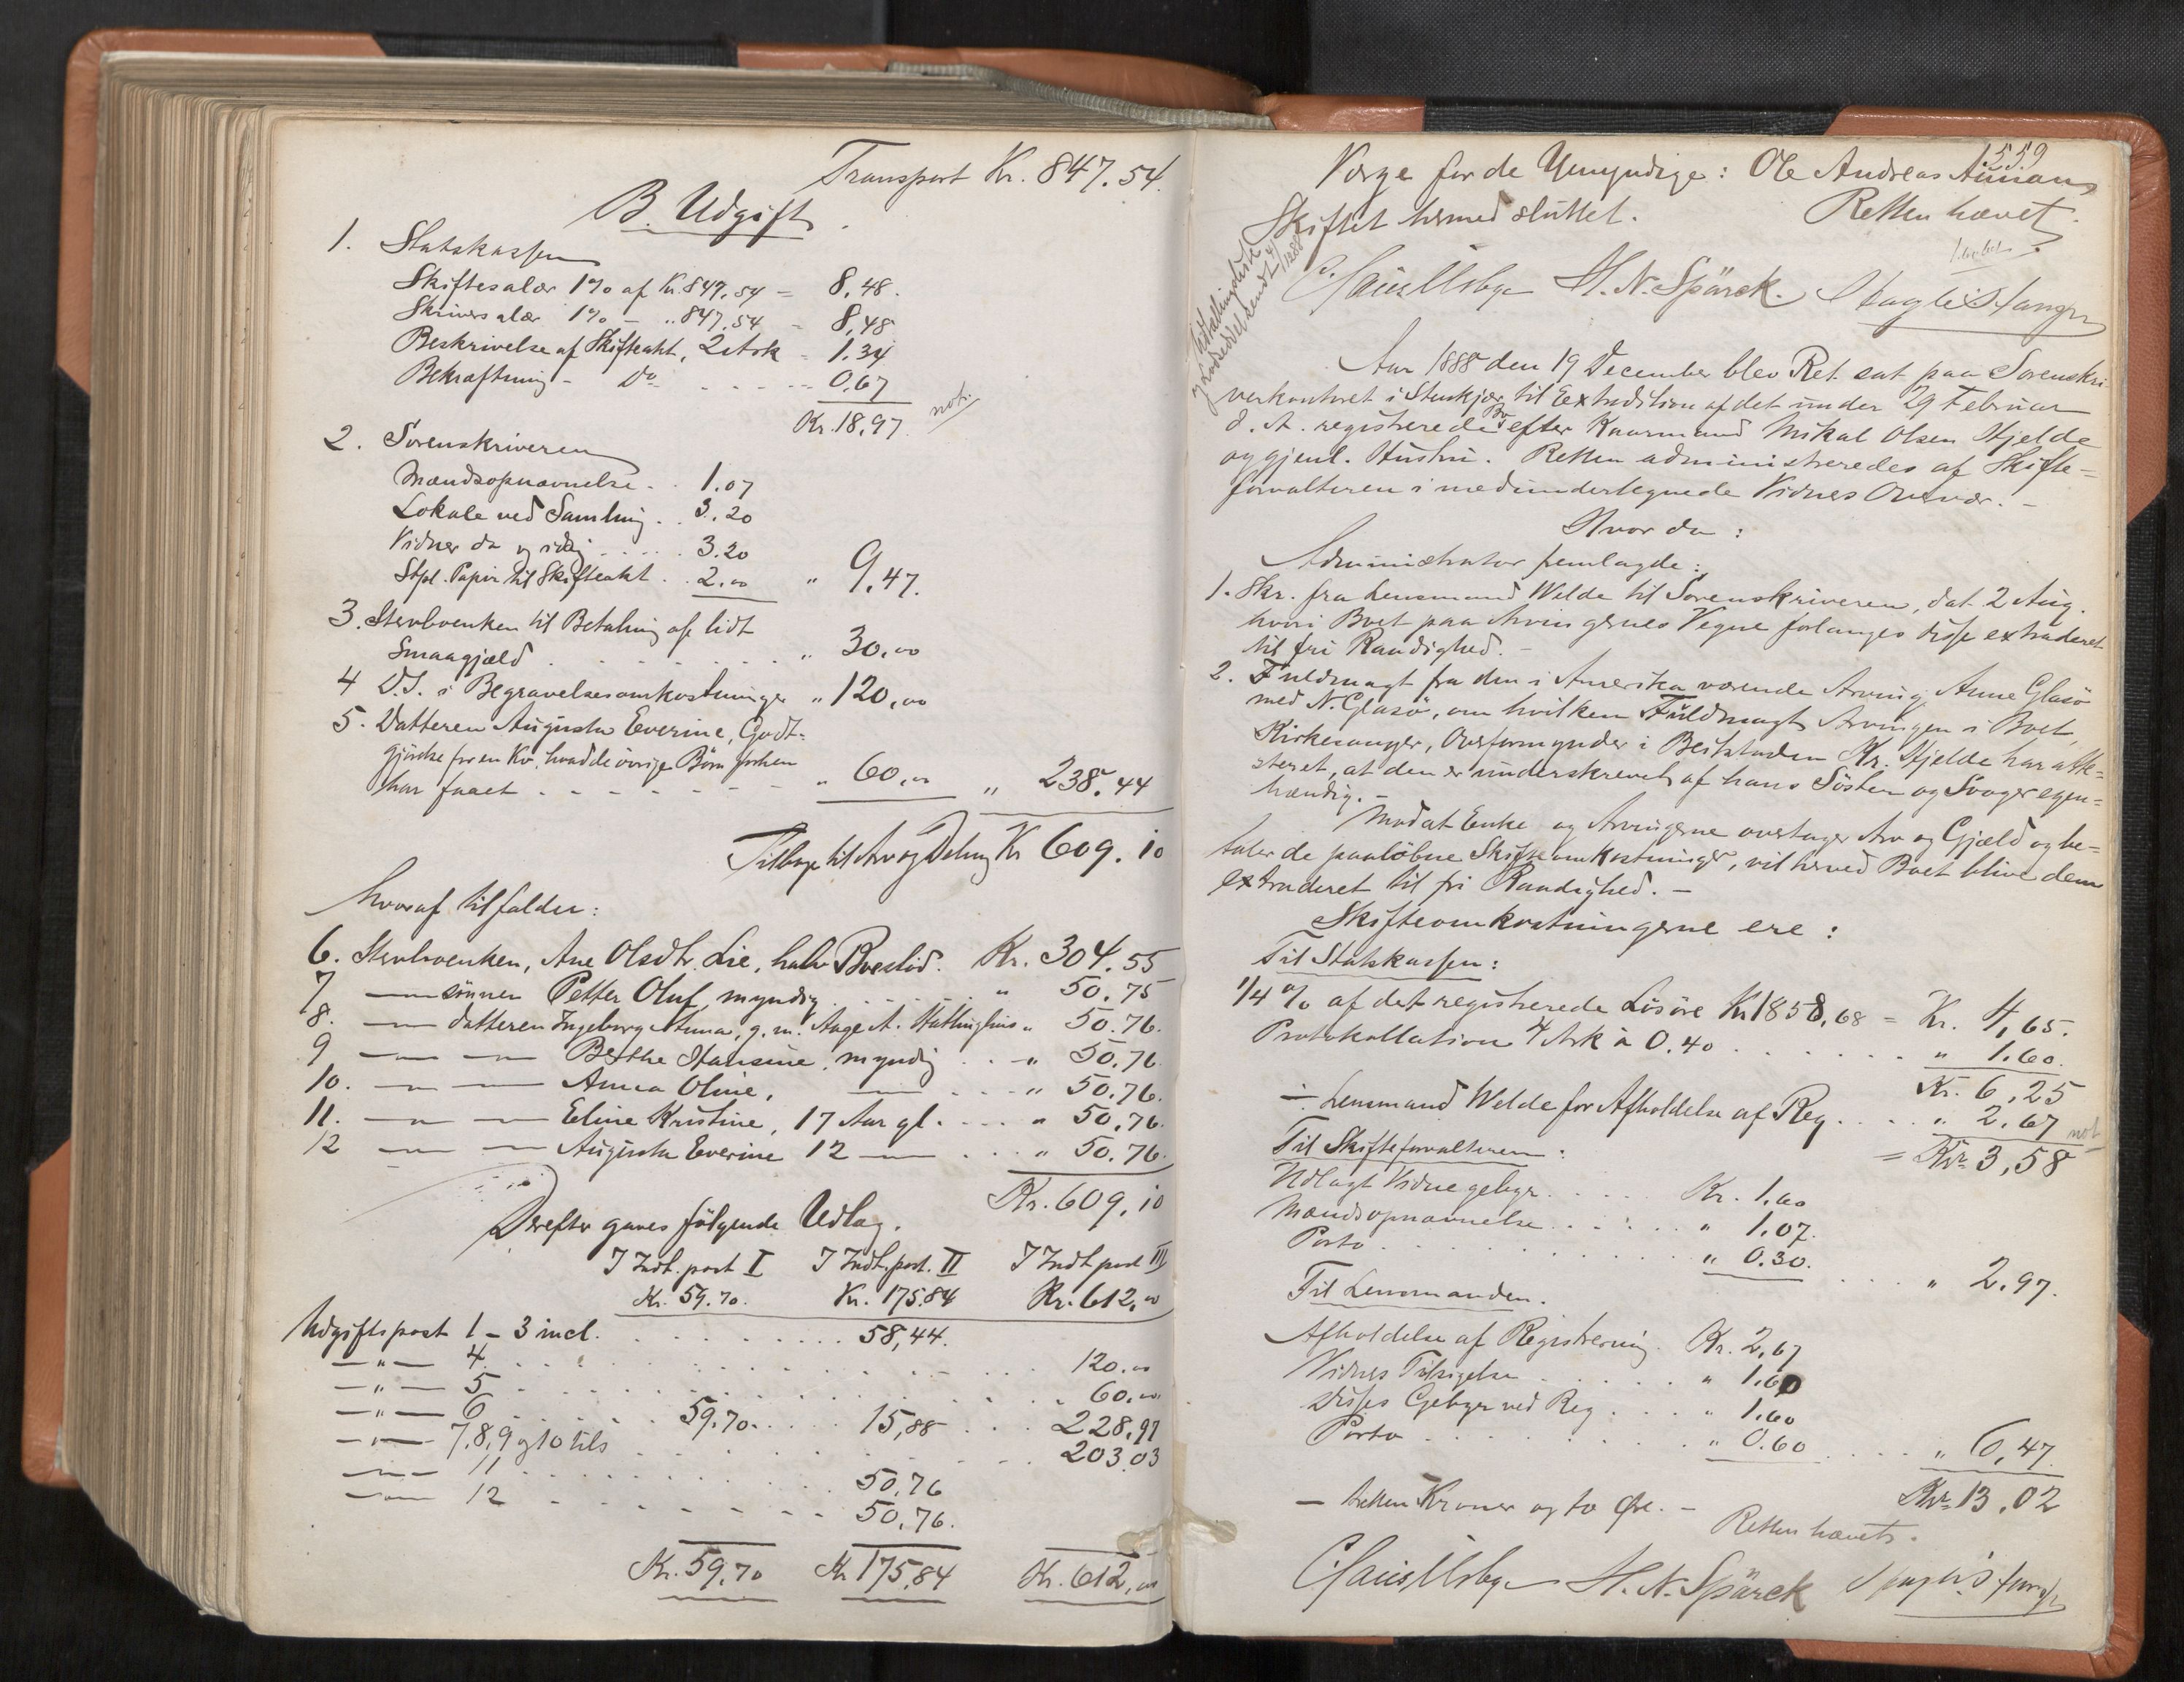 Transport Kr. 847.54.
B. Udgift.
1. Statskassen
Skiftesalær 1% af Kr. 847,54 = 8,48.
Skriversalær 1% — „ 847.54 = 8,48
Beskrivelse af Skifteakt, 2 Ark = 1.34
Bekræftning - Do - - - - - 0.67
Kr. 18.97. not.
2. Sorenskriveren
Mændsopnævnelse . . 1.07
Lokale ved Samling . . 3.20
Vidner da og idag . . . . . 3.20
Stpl. Papir til Skifteakt . . 2.00 „ 9.47.
3. Sterboenken til Betaling af lidt
Smaagjæld . . . . . . . . „ 30.00
4 D.S. i Begravelsesomkostninger „ 120,00
5. Datteren Augusta Everine, Godt-
gjørelse for en Ko, hvad de øvrige Børn forhen
har faaet - - - - - - - „ 60,00 „ 238.44
Tilbage til Arv og Deling Kr 609.10
hvoraf tilfalder:
6. Sterboenken, Ane Olsdtr. Lie, halv Boeslod. Kr. 304.55
7 — sønnen Petter Oluf, myndig . . . . . „ 50.75
8. — datteren Ingeborg Anna, g. m. Aage A. „ 50.76.
9 — — Berthe Hansine, myndig . . „ 50.76
10. — — Anna Oline, — . . . „ 50.76.
11. — — Eline Kristine, 17 Aar gl. . . . „ 50.76.
12 — — Augusta Everine 12 — . . . „ 50.76.
Kr. 609.10
Derefter gaves følgende Udlæg.
I Indt. post I I Indt. post. II I Indt post III
Kr. 59.70. Kr. 175.84 Kr. 612.00
Udgiftspost 1 - 3 incl. . . . . . . . . 58,44.
— „ — 4. . . . . . . . 120.00
— „ — 5 . . . . . . . . 60.00
— „ — 6 . . . . 59.70. . . . 15,88 . . . 228.97
— „ — 7, 8, 9 og 10 tils . . . . . . . 203.03
— „ — 11 . . . . . . . 50,76
— „ — 12 . . . . . . . 50,76.
Kr. 59,70 Kr 175,84 Kr. 612,00
559
Værge for de Umyndige: Ole Andreas
Skiftet hermed sluttet. Retten hævet.
H. N. Spärck.
Aar 1888 den 19 December blev Ret sat paa Sorenskri-
verkontoret i Stenkjær til Extradition af det under 29 Februar
d. A. registrerede Bo efter Kaarmand Mikal Olsen Hjelde
og gjenl. Hustru. Retten administreredes af Skifte-
forvalteren i medundertegnede Vidners Overvær. -
Hvor da:
Administrator fremlagde:
1. Skr. fra Lensmand Welde til Sorenskriveren, dat. 2 Aug.
hvori Boet paa Arvingernes Vegne forlanges disse extraderet
til fri Raadighed. -
2. Fuldmagt fra den i Amerika værende Arving Anne Glasø
med N. Glasø, om hvilken Fuldmagt Arvingen i Boet,
Kirkesanger, Overformynder i Beitstaden Kr. Hjelde har atte-
steret, at den er underskrevet af hans Søster og Svoger egen-
hændig. -
Mod at Enke og Arvingerne overtager Arv og Gjæld og be-
taler de paaløbne Skifteomkostninger, vil herved Boet blive dem
extraderet til fri Raadighed. -
Skifteomkostningerne ere:
Til Statskassen:
1/4 % af det registrerede Løsøre Kr 1858,68 = Kr. 4,65.
Protokollation 4 Ark à 0.40 . . . . . . „ 1.60.
Kr. 6,25
÷ Lensmand Welde for Afholdelse af Reg. . . . „ 2.67 not
= Kr. 3,58
Til Skifteforvalteren:
Udlagt Vidnegebyr . . . . Kr. 1.60
Mændsopnævnelse . . . . . „ 1.07.
Porto . . . . . . . . „ 0.30. . . . „ 2.97.
Til Lensmanden.
Afholdelse af Registrering. Kr. 2,67
Vidners Tilsigelse . . . . . „ 1.60
disses Gebyr ved Reg . . . . „ 1.60
Porto . . . . . . . . „ 0.60 . . . . „ 6,47.
Kr. 13.02
— tretten Kroner og to Øre. —
Retten hævet.
H. N. Spärck